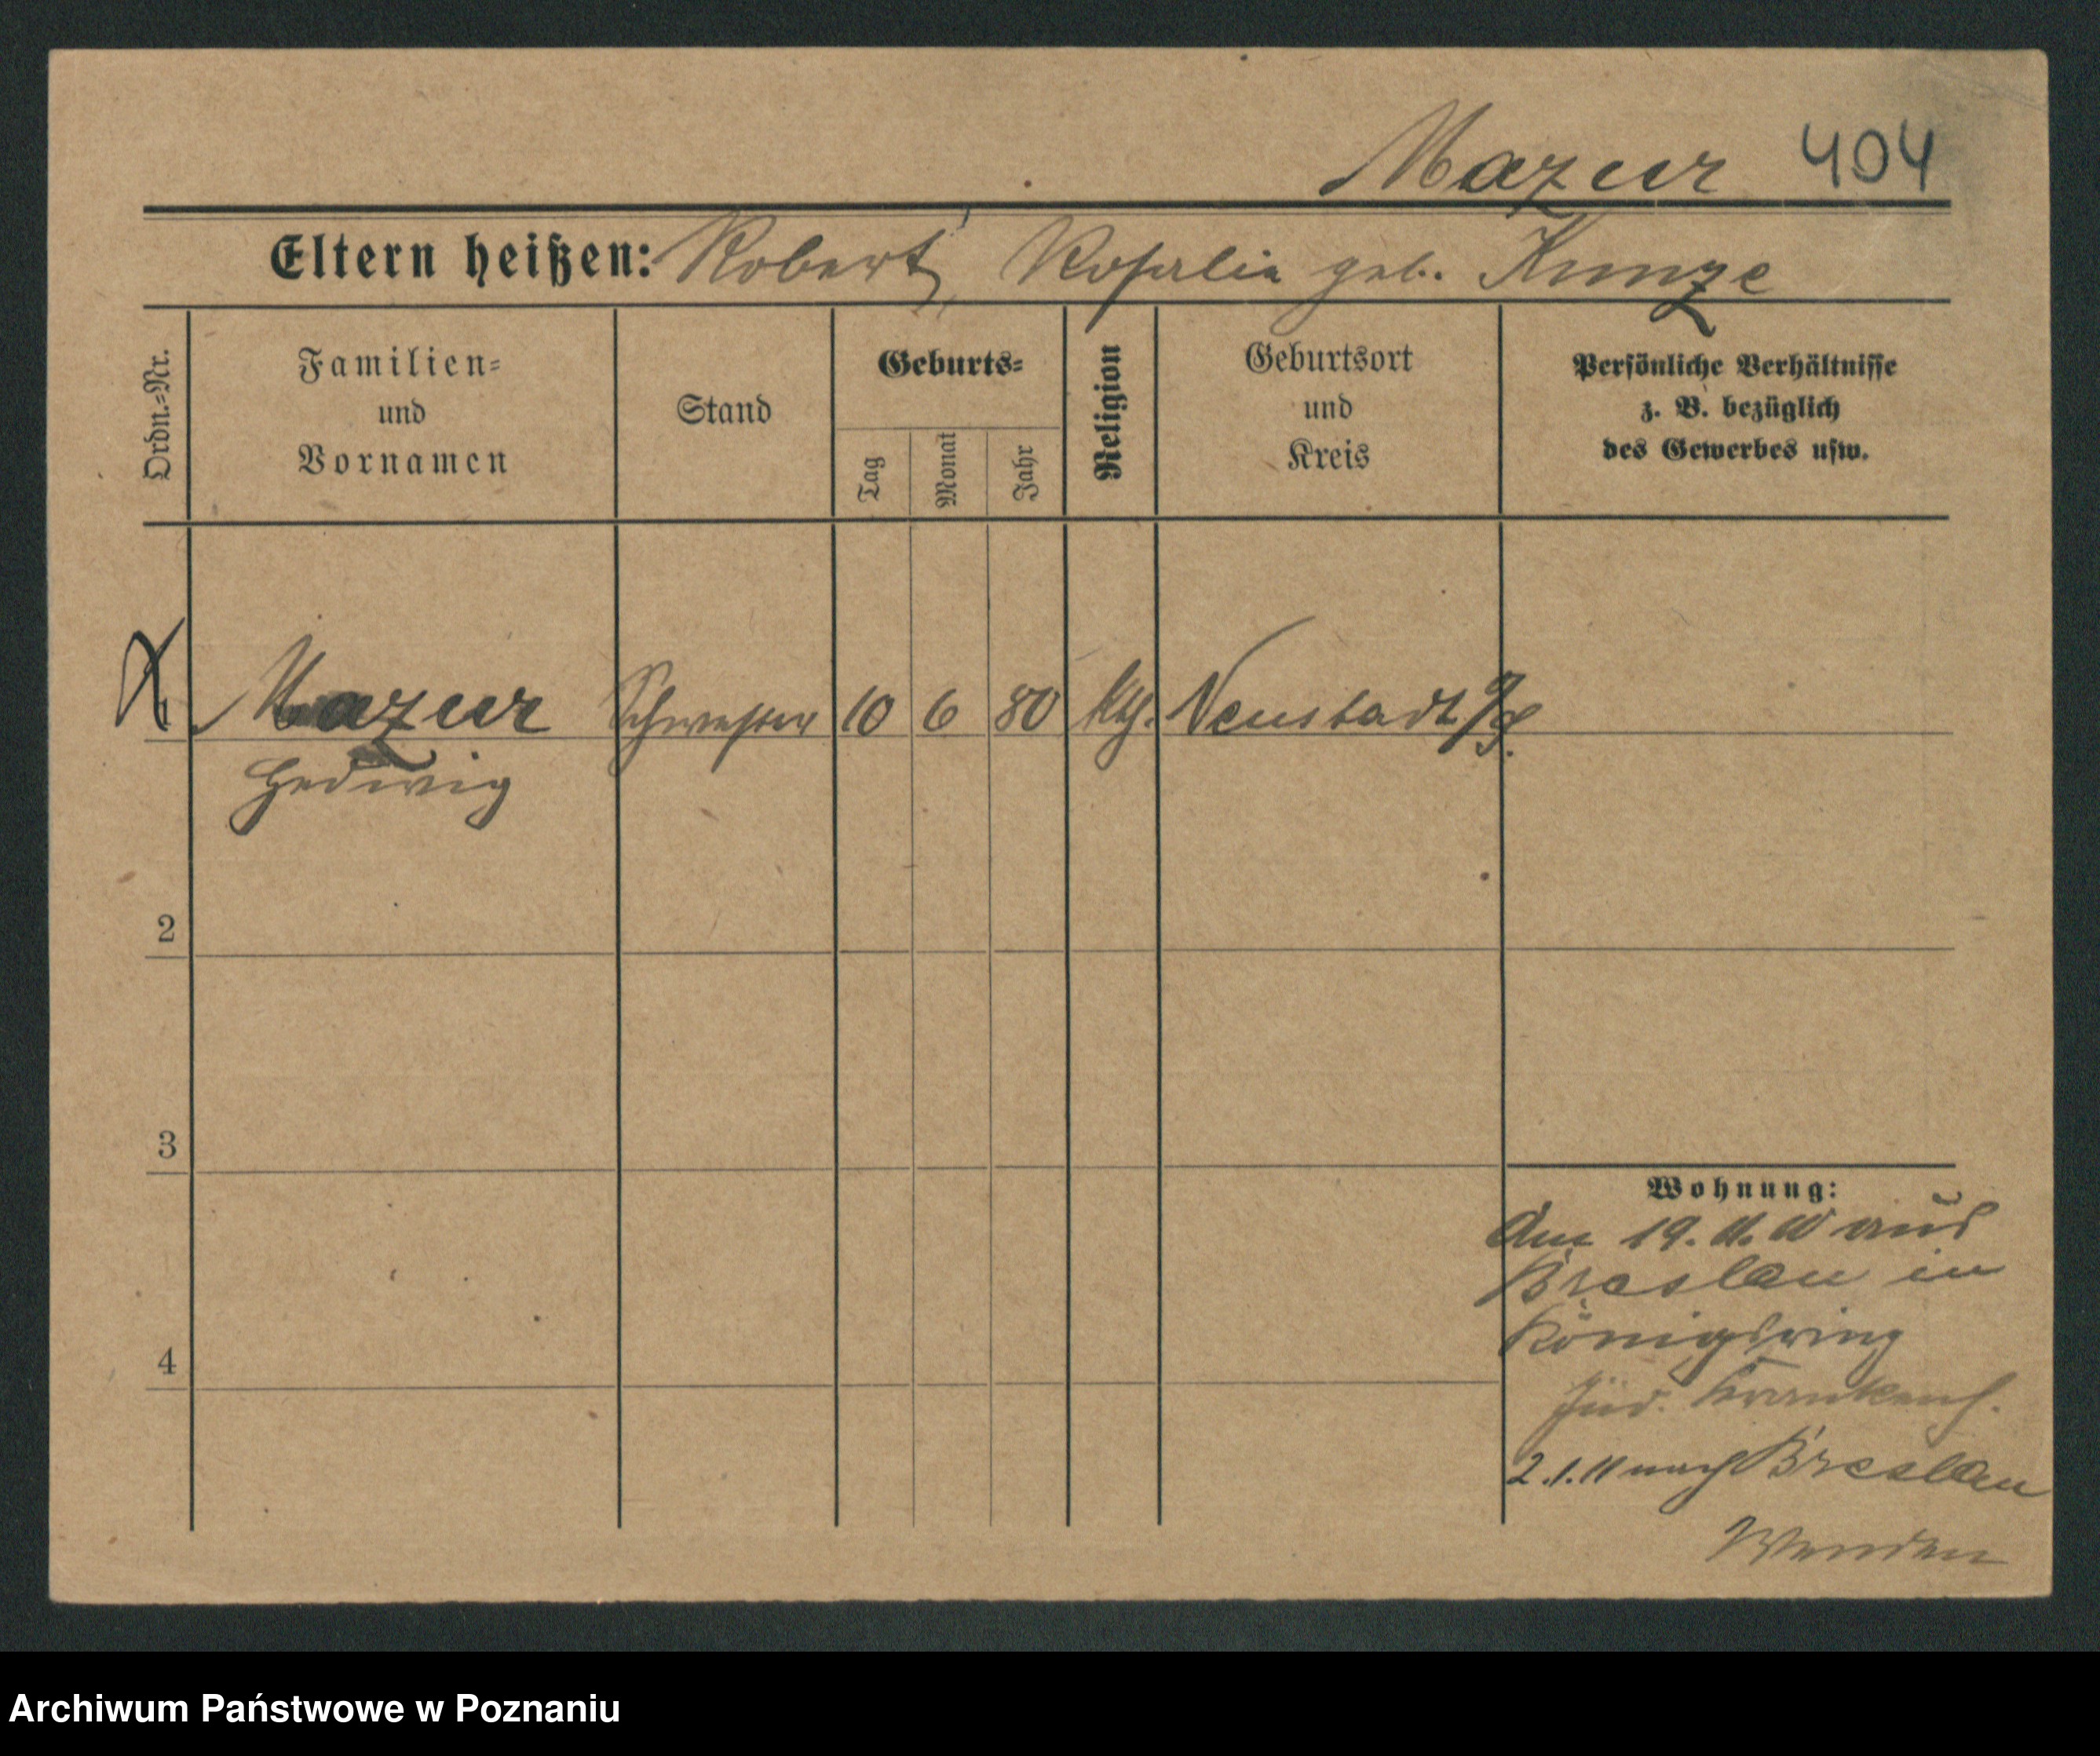 Mazur 404
Eltern heißen: Robert, Rosalie geb. Kunze
Ordn.-Nr.
Familien-
und
Vornamen
Stand
Geburts-
Tag
Monat
Jahr
Religion
Geburtsort
und
Kreis
Persönliche Verhältnisse
z. B. bezüglich
des Gewerbes usw.
1 Mazur Schwester 10 6 80 kth. Neustadt
Hedwig
2
3
4
Wohnung:
Am 19. 11. 10 aus
Breslau in
Königsring
Jüd. Krankenh.
2.1.11 nach Breslau
Wenden
Archiwum Państwowe w Poznaniu